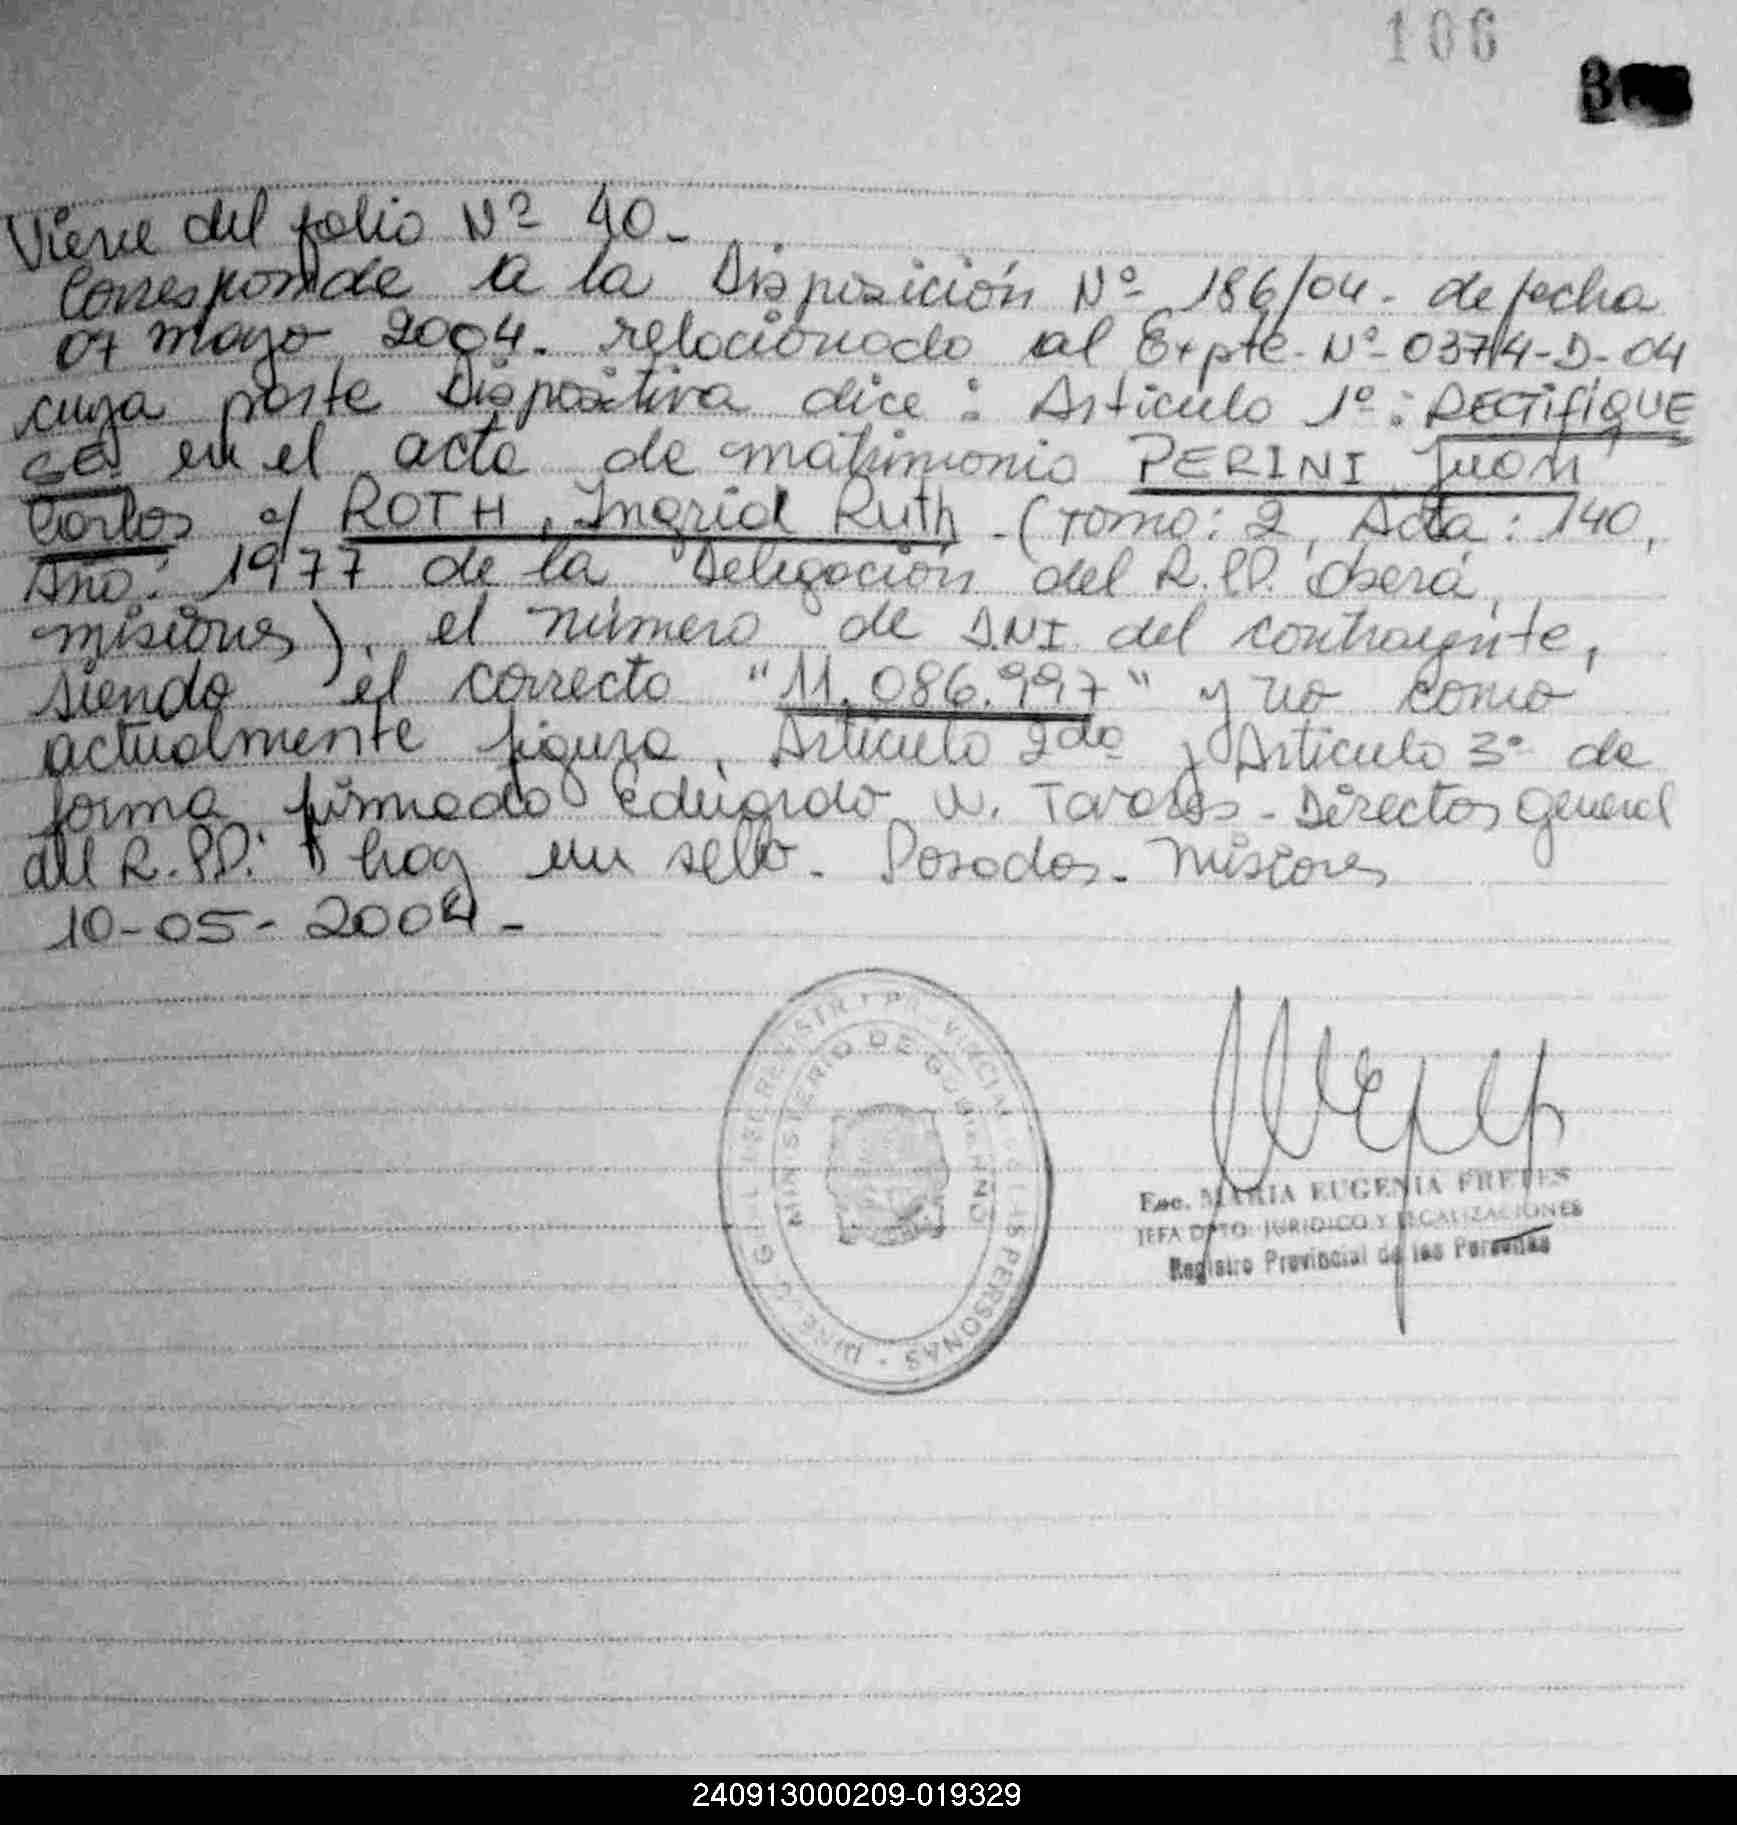 106
Viene del folio Nº 40.-
Corresponde a la Disposición Nº 186/04. de fecha
07 mayo 2004. relacionado al Expte. Nº 0374-D-04
cuya parte Dispositiva dice: Artículo 1º: RECTIFIQUE
SE en el acta de matrimonio PERINI, Juan
Carlos c/ ROTH, Ingrid Ruth. (Tomo: 2, Acta: 140,
Año: 1977 de la Delegación del R.PP. Oberá,
misiones), el número de DNI del contrayente,
siendo el correcto "11.086.997" y no como
actualmente figura. Artículo 2do y Artículo 3º de
forma firmado Eduardo N. Tavares - Director General
del R.PP. hay un sello. Posadas. Misiones
10-05-2004.-
MINISTERIO DE GOBIERNO
PROVINCIAL DE LAS PERSONAS
Esc. MARIA EUGENIA FRETES
JEFA DPTO. JURIDICO Y LEGALIZACIONES
Registro Provincial de las Personas
240913000209-019329